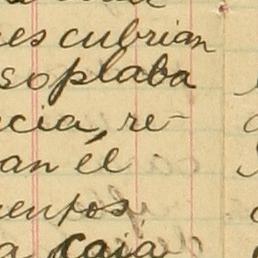 es cubrian
soplaba
cia, re-
an él
entos
a caia